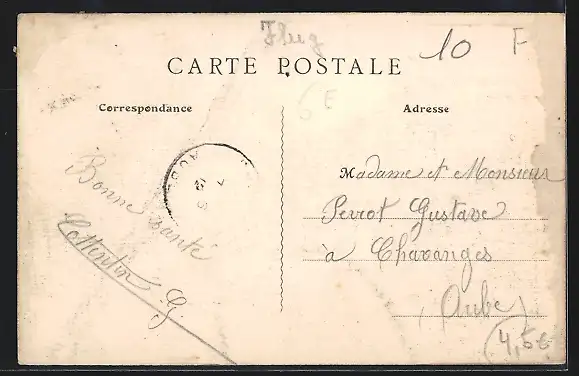 Flug
10 F
CARTE POSTALE
6 E
Correspondance
Adresse
Bonne santé
Cottentin G
Madame et Monsieur
Perrot Gustave
à Chavanges
(Aube)
4,5€